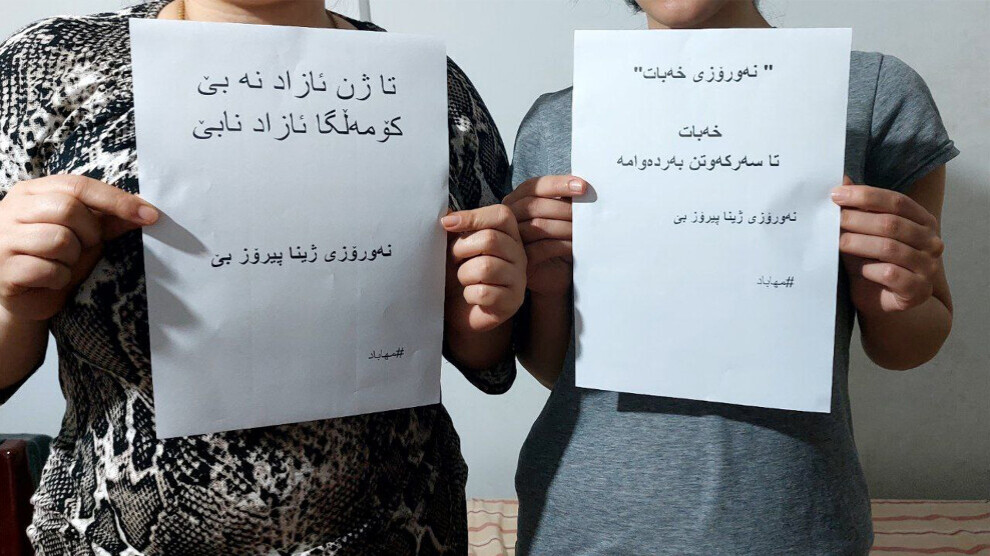 تا ژن ئازاد نه بێ
کۆمەڵگا ئازاد نابێ
نەورۆزی ژینا پیرۆز بێ
#مهاباد
" نەورۆزی خەبات"
خەبات
تا سەرکەوتن بەردەوامە
نەورۆزی ژینا پیرۆز بێ
#مهاباد